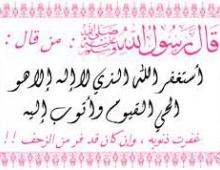 قال رسول الله ﷺ : من قال :
أستغفر الله الذي لا إله إلا هو
الحي القيوم وأتوب إليه
غفرت ذنوبه ، وإن كان قد فر من الزحف !!